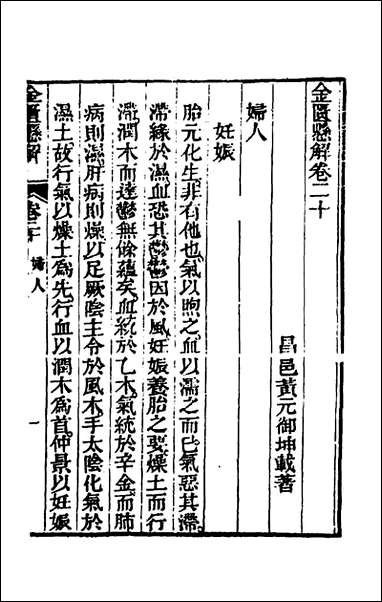 金匱懸解卷二十
昌邑黃元御坤載著
婦人
妊娠
胎元化生非有他也氣以煦之血以濡之而已氣惡其滯
滯緣於濕血恐其鬱鬱因於風妊娠養胎之要燥土而行
滯潤木而達鬱無餘蘊矣血統於乙木氣統於辛金而肺
病則濕肝病則燥以足厥陰主令於風木手太陰化氣於
濕土故行氣以燥土為先行血以潤木為首仲景以妊娠
金匱懸解
卷二十
婦人
一